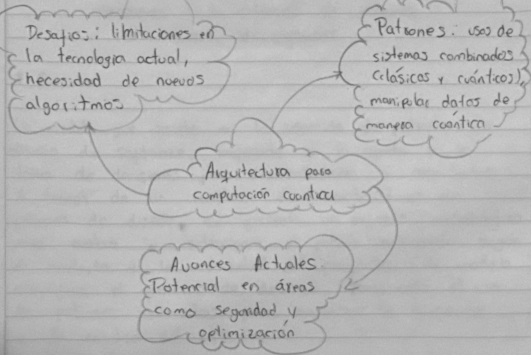 Desafíos: limitaciones en
la tecnología actual,
necesidad de nuevos
algoritmos
Patrones: usos de
sistemas combinados
(clásicos y cuánticos),
manipular datos de
manera cuántica
Arquitectura para
computación cuantica
Avances Actuales.
Potencial en áreas
como seguridad y
optimización